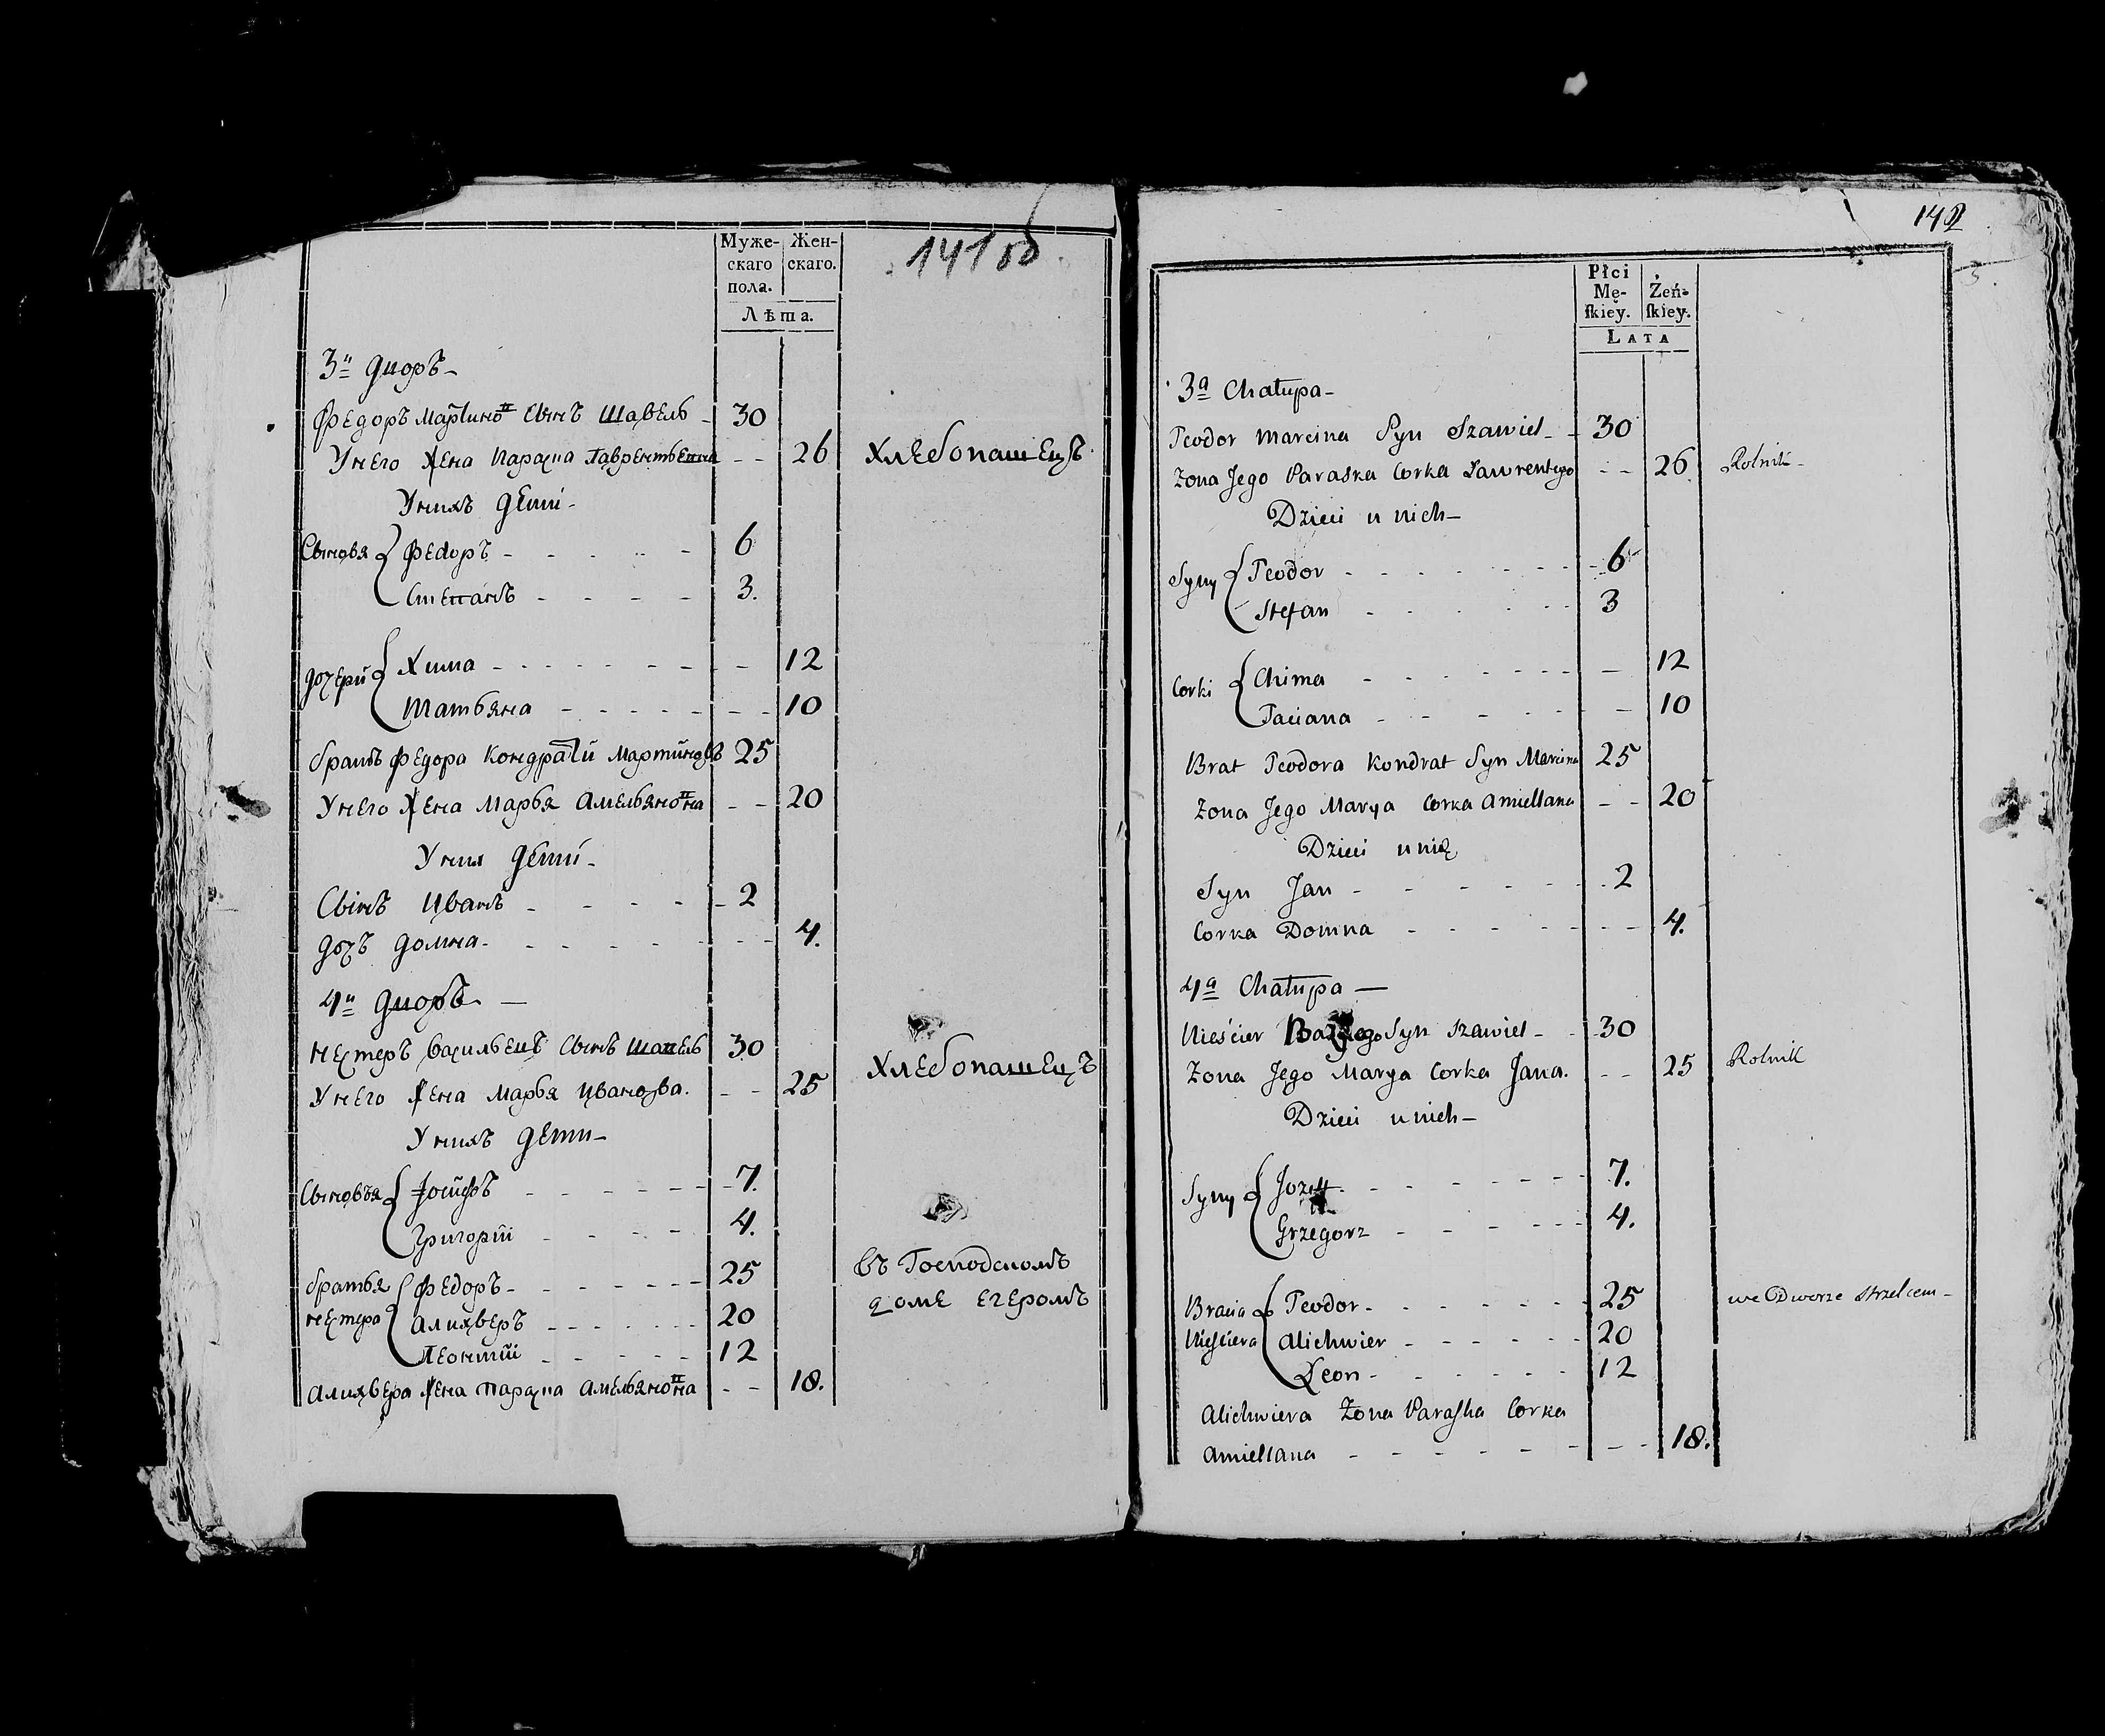 Муже-
скаго
пола.
Жен-
скаго.
Лѣта.
141 об
3й дворъ -
Федоръ Мартиновъ сынъ Шавель - 30
У него жена Параска Лаврентьевна - - 26 Хлебопашецъ
У нихъ дети -
Сыновя { Федоръ - - - - 6
Степанъ - - - - 3.
дочери { Химa - - - - 12
Татьяна - - - - 10
братъ Федора Кондратiй Мартиновъ 25
У него жена Марья Амельяновна - - 20
У них дети -
Сынъ Иванъ - - - - 2
дочъ домна - - - - 4.
4й дворъ —
Нестеръ Васильевъ сынъ Шавель 30
Хлебопашецъ
У него жена Марья Иванова. - - 25
У нихъ дети -
Сыновъя { Iосифъ - - - - 7.
Григорiй - - - - 4.
братья { Федоръ - - - - 25 въ Господскомъ
нестера Алихверъ - - - - 20 доме егеромъ
Леонтiй - - - - 12
Алихвера жена параска Амельяновна - - 18.
142
3
Płci
Mę-
ſkiey.
Żeń-
ſkiey.
LATA
3a Chałupa -
Teodor Marcina Syn Szawiel - - 30
Żona Jego Paraska Corka Lawrentego - - 26 Rolnik -
Dzieci u nich -
Syny { Teodor - - - - 6
Stefan - - - - 3
Corki { Chima - - - - 12
Taciana - - - - 10
Brat Teodora Kondrat Syn Marcina 25
Żona Jego Marya Corka Amiellana - - 20
Dzieci u nich
Syn Jan - - - - 2
Corka Domna - - - - 4.
4a Chałupa —
Nieścier Syn Szawiel - 30
Żona Jego Marya Corka Jana. - - 25 Rolnik
Dzieci u nich -
Syny { Jozeff - - - - 7.
Grzegorz - - - - 4.
Bracia { Teodor - - - - 25 we Dworze strzelcem -
Nieściera Alichwier - - - - 20
Leon - - - - 12
Alichwiera Żona Paraſka Corka
Amiellana - - - - 18.